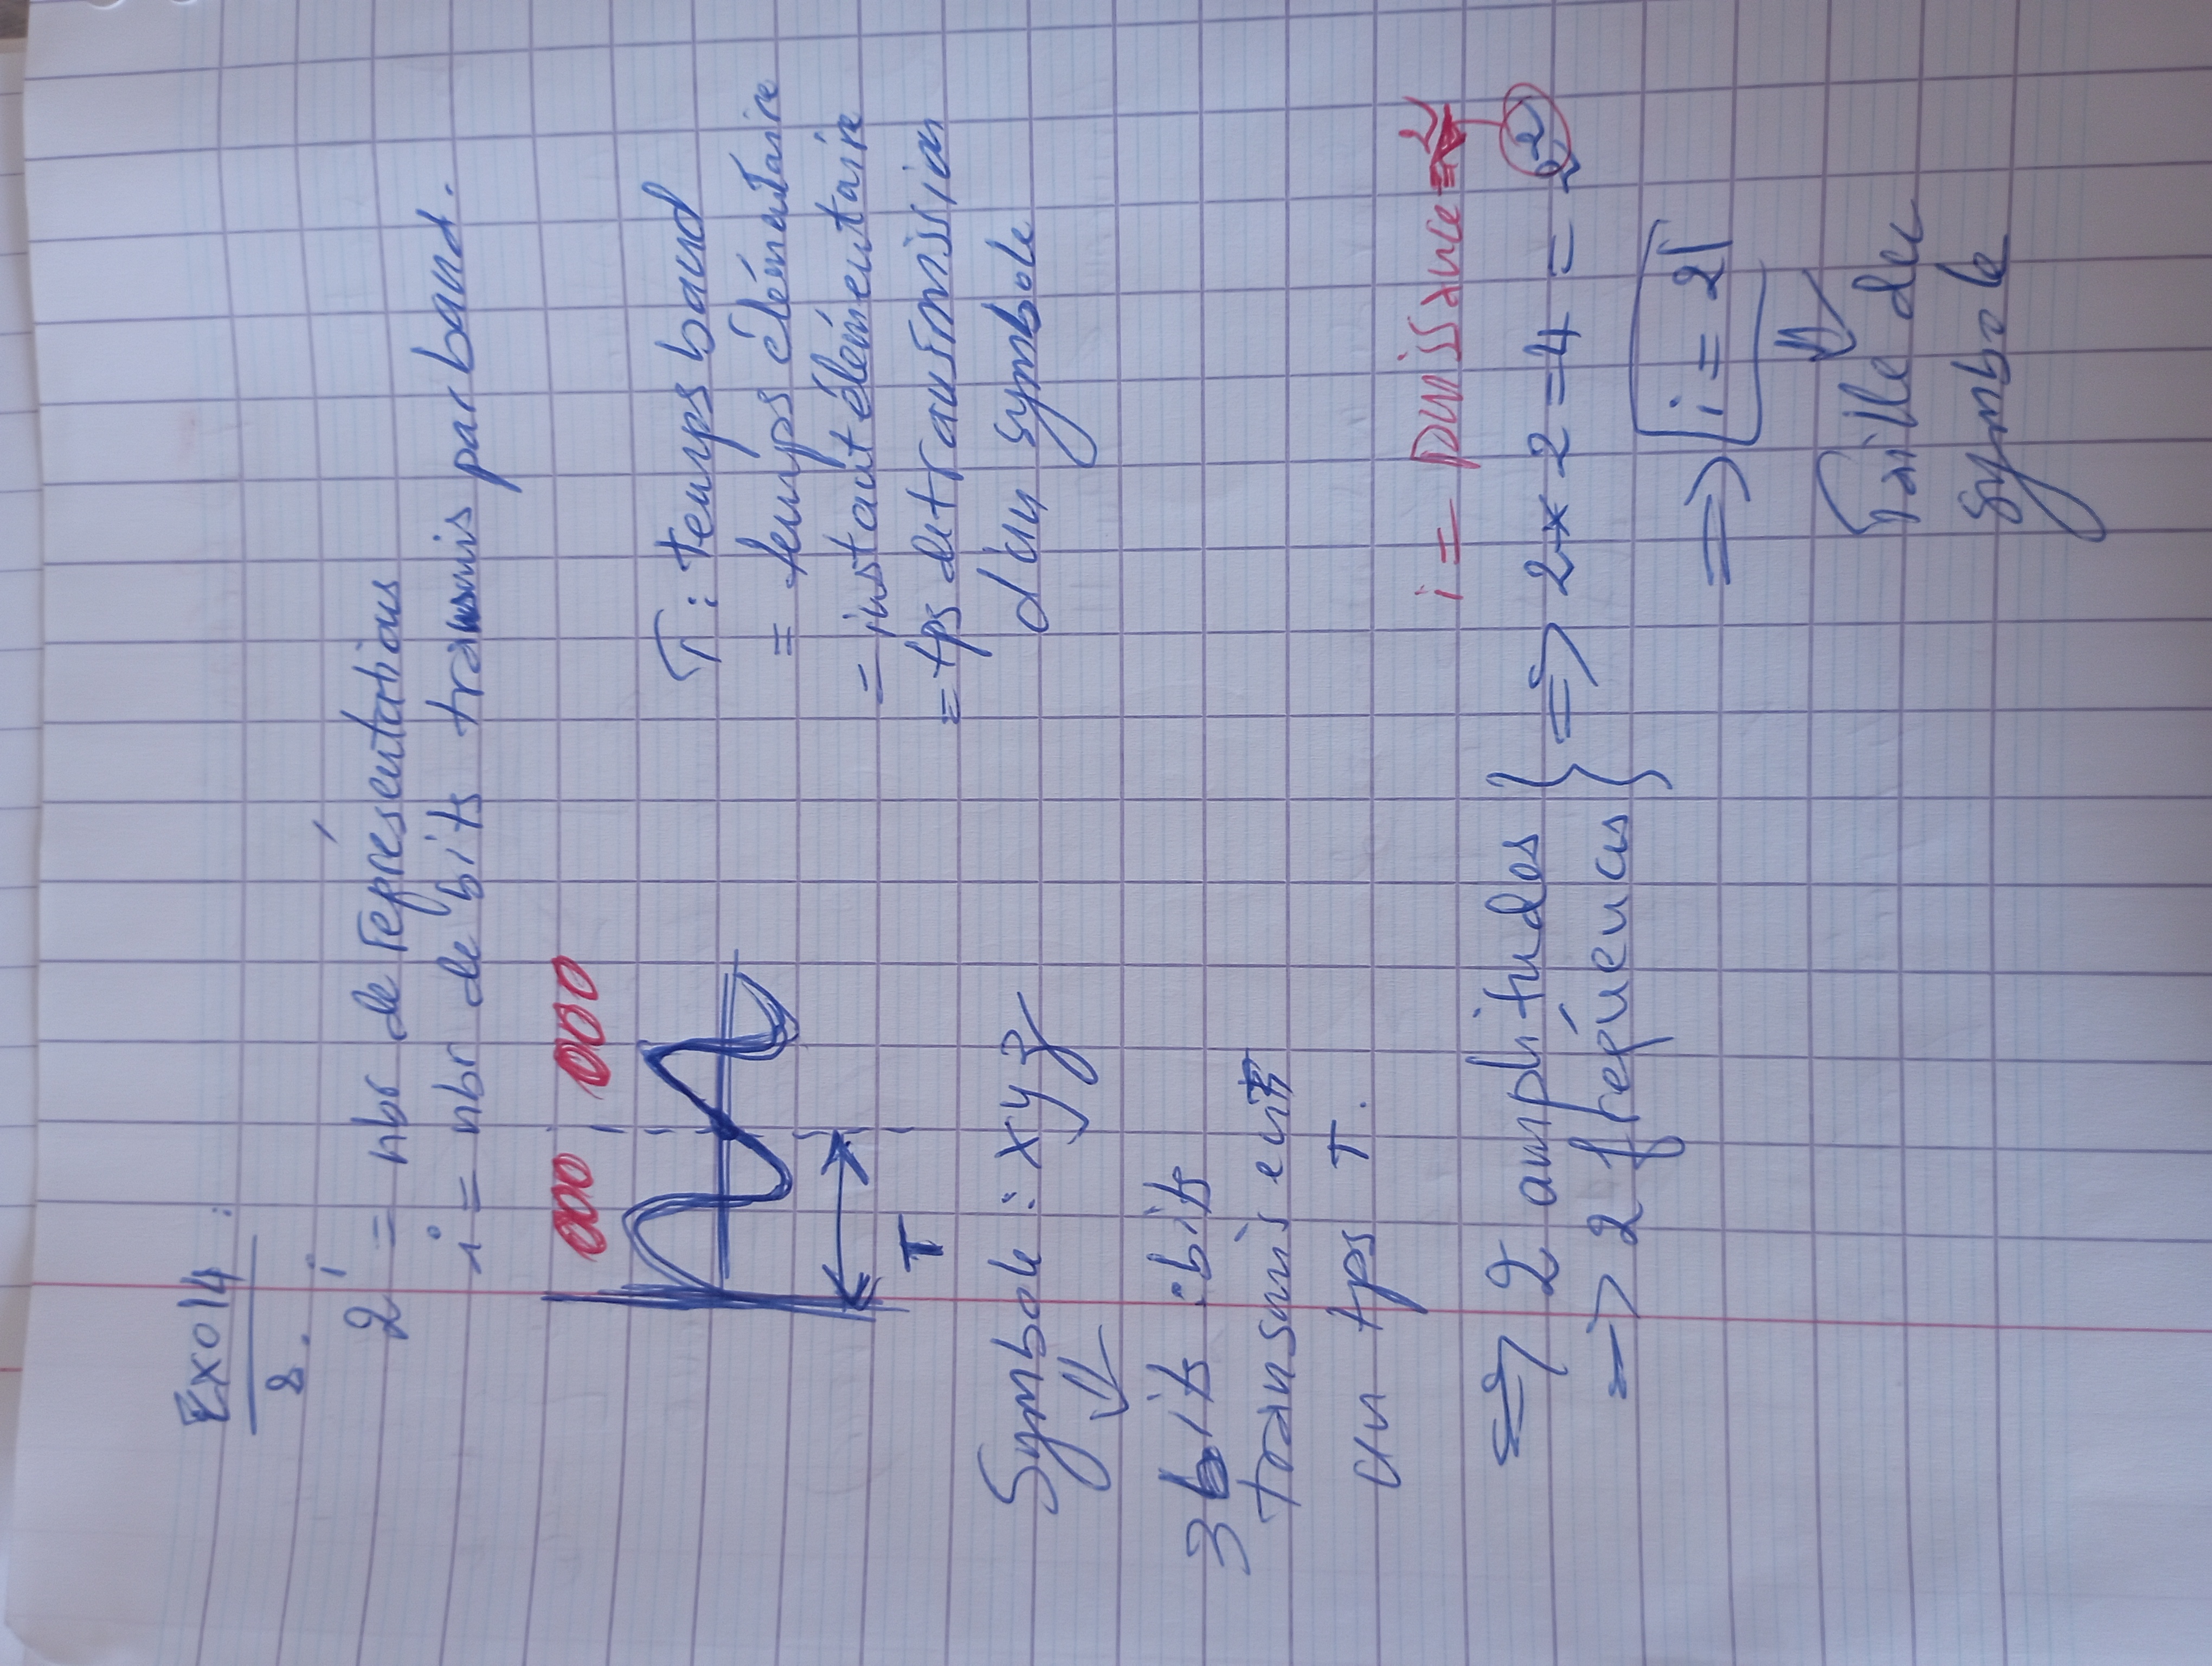 Exo 14 :
8.
2^i = nbr de représentations
i = nbr de bits transmis par baud.
000 | 000
T
T : temps baud
= temps élémentaire
= instant élémentaire
= tps de transmission
d'un symbole
Symbole : xyz
3 bits : bits
transmis en
un tps T.
i = puissance =
=> 2 amplitudes } => 2 x 2 = 4 = 2^2
-> 2 fréquences }
=> i = 2
Taille du
symbole